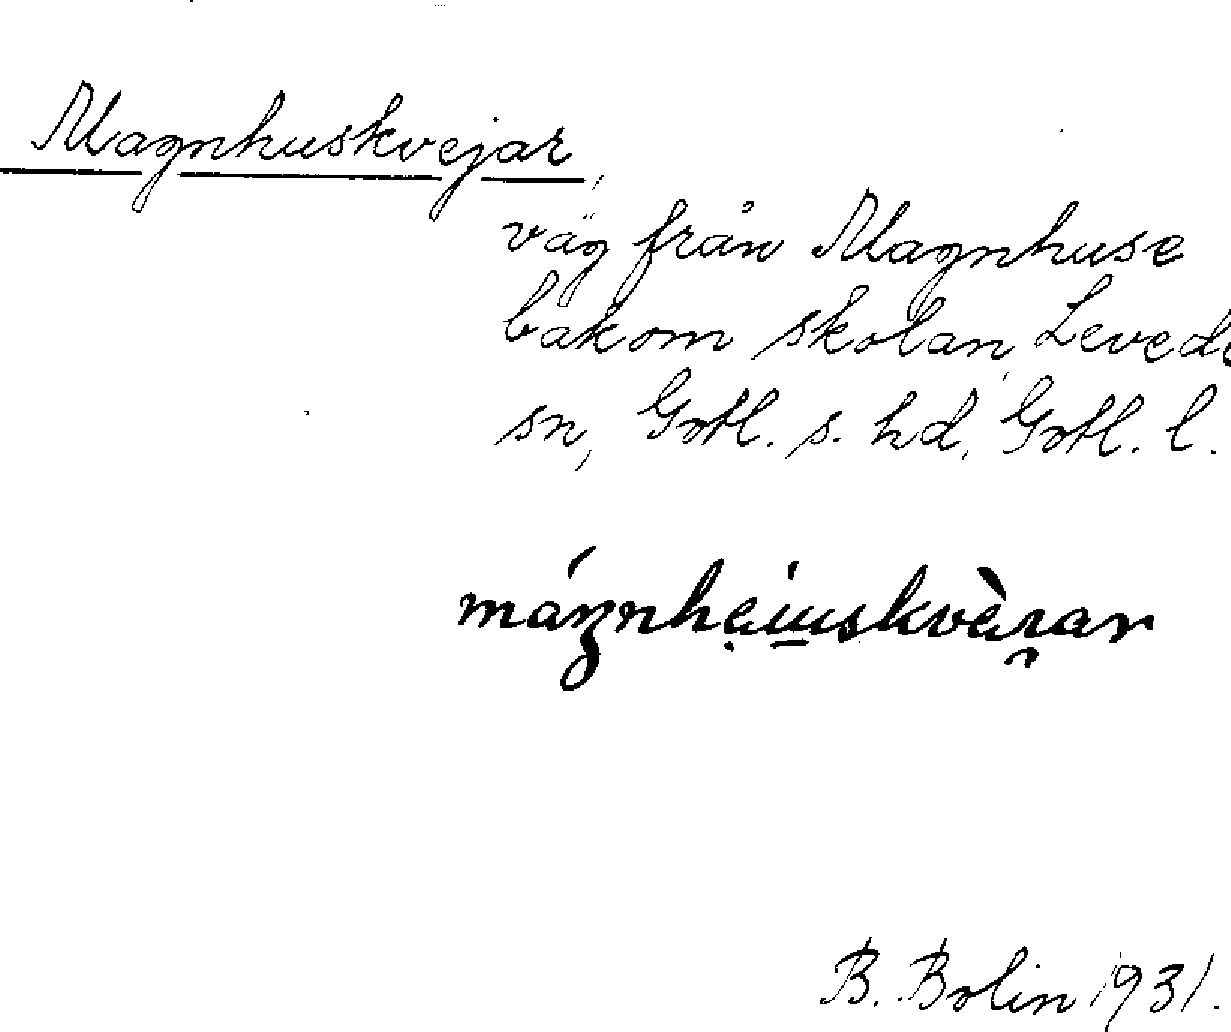 Magnhuskvejar,
väg från Magnhuse
bakom skolan, Levede
sn, Gotl. s. hd, Gotl. l.
B. Bolin 1931.